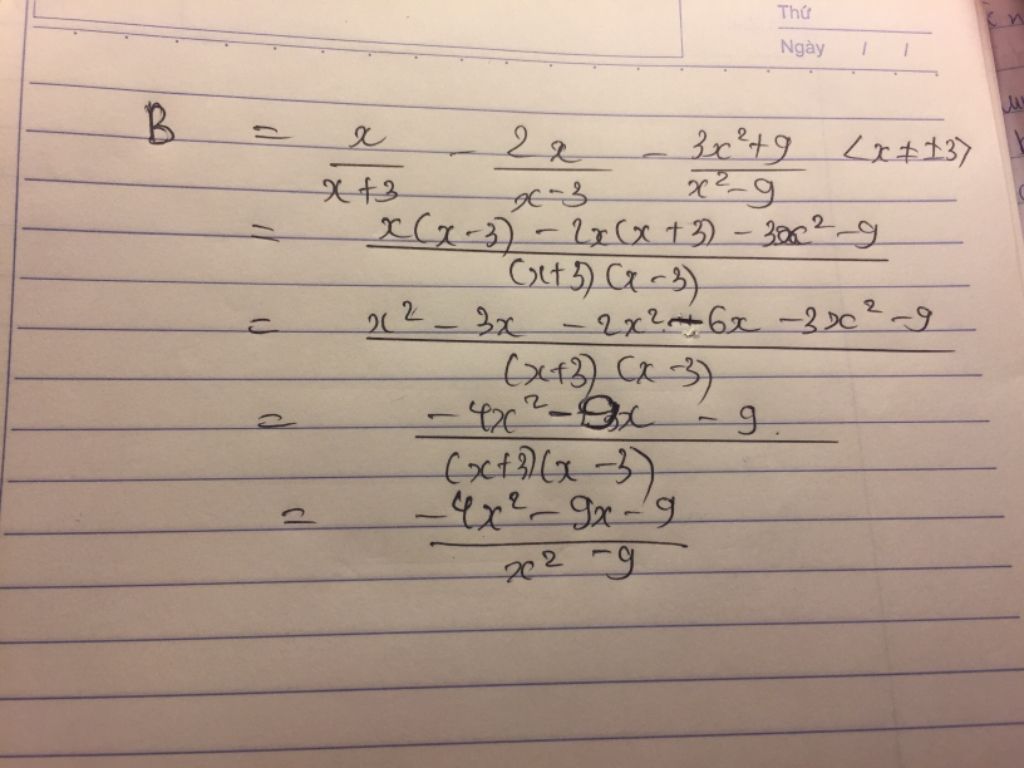 Thứ
Ngày / /
B = x/(x+3) - 2x/(x-3) - (3x²+9)/(x²-9) <x≠±3>
= (x(x-3) - 2x(x+3) - 3x²-9)/((x+3)(x-3))
= (x² - 3x - 2x² - 6x - 3x² - 9)/((x+3)(x-3))
= (-4x² - 9x - 9)/((x+3)(x-3))
= (-4x² - 9x - 9)/(x² - 9)